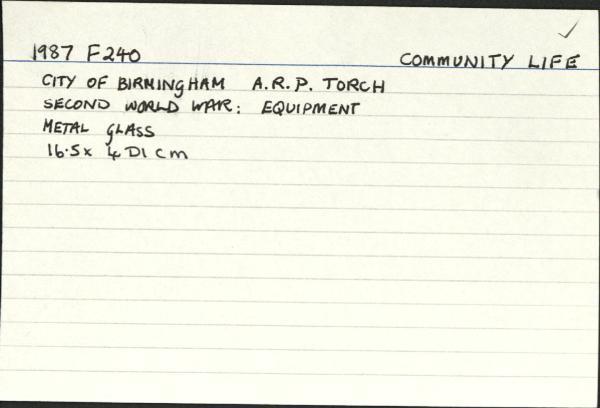 1987 F240 COMMUNITY LIFE
CITY OF BIRMINGHAM A.R.P. TORCH
SECOND WORLD WAR: EQUIPMENT
METAL GLASS
16.5 x 4 DI cm